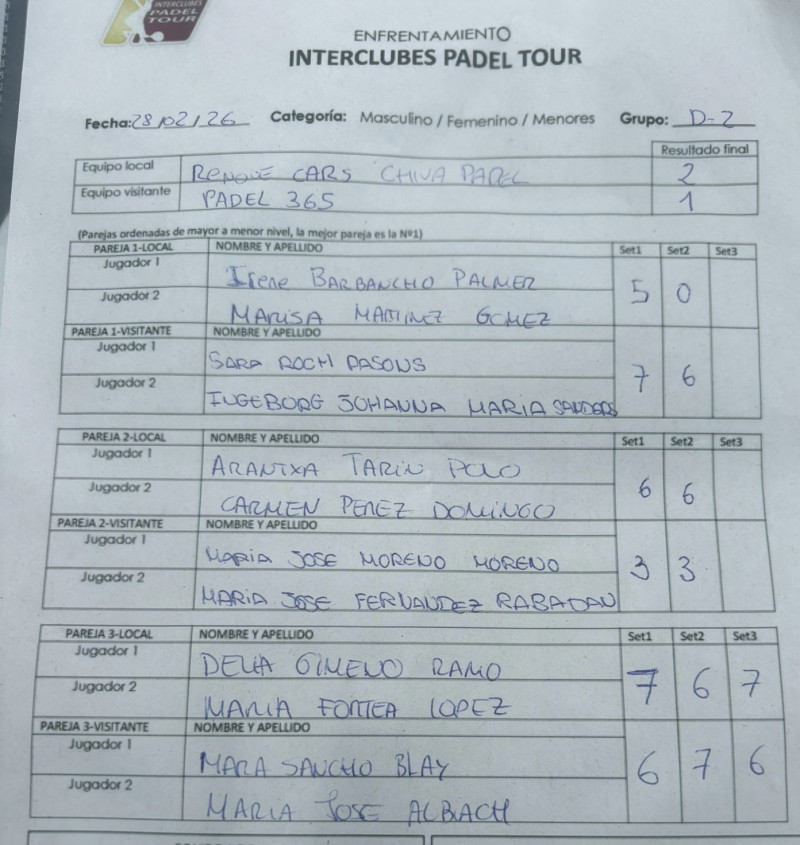 INTERCLUBES
PADEL
TOUR
ENFRENTAMIENTO
INTERCLUBES PADEL TOUR
Fecha: 28/02/26 Categoría: Masculino / Femenino / Menores Grupo: D-2
Resultado final
Equipo local RENOVE CARS CHIVA PADEL 2
Equipo visitante PADEL 365 1
(Parejas ordenadas de mayor a menor nivel, la mejor pareja es la Nº1)
PAREJA 1-LOCAL NOMBRE Y APELLIDO Set1 Set2 Set3
Jugador 1 Irene BARBANCHO PALMER
5 0
Jugador 2 MARISA MARTINEZ GOMEZ
PAREJA 1-VISITANTE NOMBRE Y APELLIDO
Jugador 1 SARA ROCH PASONS
7 6
Jugador 2 INGEBORG JOHANNA MARIA SANDERS
PAREJA 2-LOCAL NOMBRE Y APELLIDO Set1 Set2 Set3
Jugador 1 ARANTXA TARIN POLO
6 6
Jugador 2 CARMEN PEREZ DOMINGO
PAREJA 2-VISITANTE NOMBRE Y APELLIDO
Jugador 1 MARIA JOSE MORENO MORENO
3 3
Jugador 2 MARIA JOSE FERNANDEZ RABADAN
PAREJA 3-LOCAL NOMBRE Y APELLIDO Set1 Set2 Set3
Jugador 1 DELIA GIMENO RAMO
7 6 7
Jugador 2 MARIA FORTEA LOPEZ
PAREJA 3-VISITANTE NOMBRE Y APELLIDO
Jugador 1 MARA SANCHO BLAY
6 7 6
Jugador 2 MARIA JOSE ALBIACH